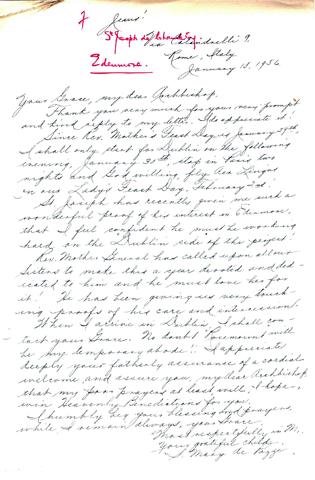 Jesus!
St Joseph de
Edenmore.
Rome, Italy
January 18, 1956
Your Grace, my dear Archbishop.
Thank you very much for your very prompt
and kind reply to my letter. I do appreciate it!
Since Rev. Mother's Feast Day is January 29th,
I shall only start for Dublin on the following
evening, January 30th, stop in Paris two
nights and God willing, fly Aer Lingus
on our Lady's Feast Day, February 2nd!
St. Joseph has recently given me such a
wonderful proof of his interest in Edenmore,
that I feel confident he must be working
hard on the Dublin side of the project!
Rev. Mother General has called upon all our
Sisters to make this a year devoted and ded-
icated to him and he must love her for
it! He has been giving us very touch-
ing proofs of his care and intercession!
When I arrive in Dublin, I shall con-
tact your Grace. No doubt, will
be my temporary abode! I appreciate
deeply your fatherly assurance of a cordial
welcome and assure you, my dear Archbishop
that my poor prayers at least will, I hope,
win Heavenly Benedictions for you.
I humbly beg your blessing and prayers,
while I remain always, your Grace
Most respectfully in
Your grateful child,
Mary de Pazzi